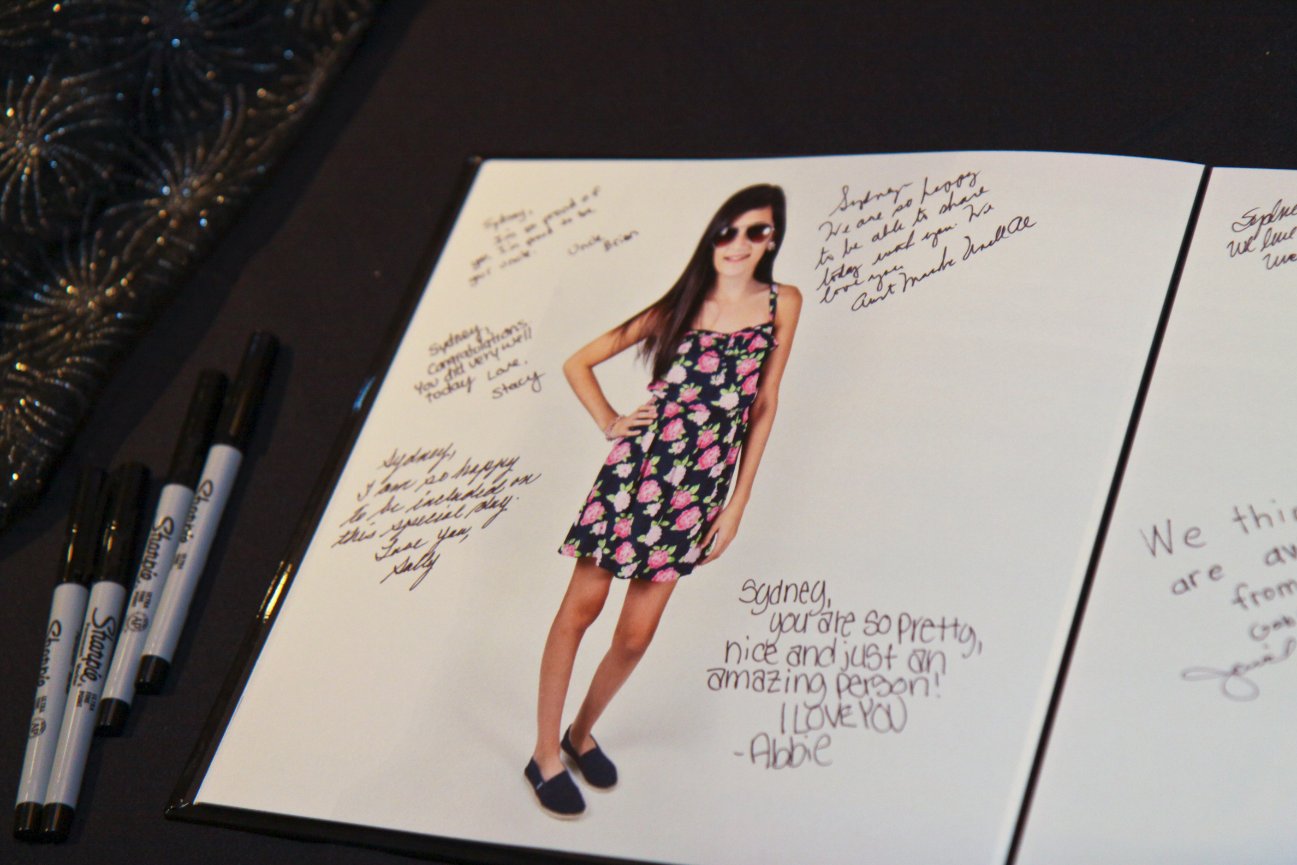 Sydney,
I'm so proud of
you. I'm proud to be
your uncle.
Uncle
Brian
Sydney,
Congratulations,
You did very well
today Love,
Stacy
Sydney,
I am so happy
to be included on
this special day.
Love You,
Sally
Sydney
We are so happy
to be able to share
today with you. We
love you
Aunt
Sydney,
you are so pretty,
nice and just an
amazing person!
I LOVE YOU
-Abbie
We
are
from
Sharpie
Sharpie
Sharpie
Sharpie